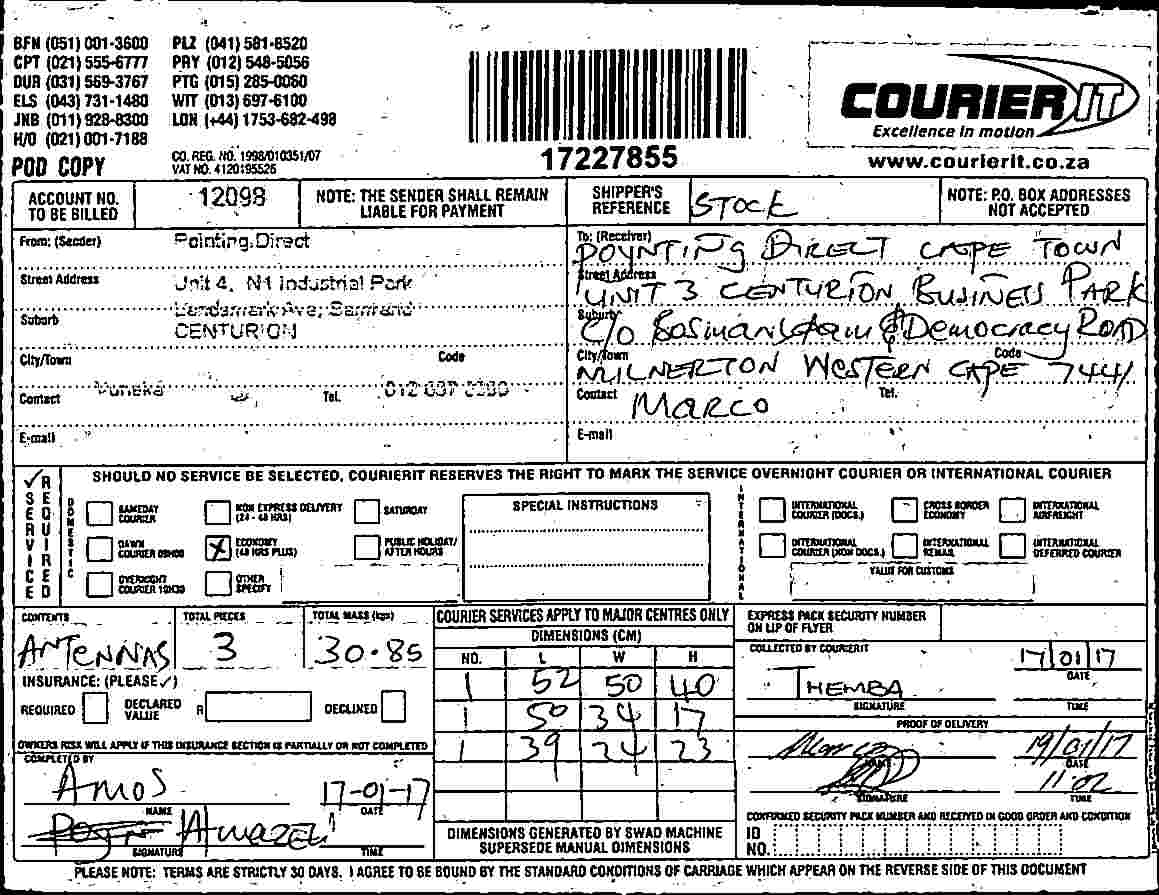 BFN (051) 001-3600 PLZ (041) 581-8520
CPT (021) 555-6777 PRY (012) 548-5056
DUR (031) 569-3767 PTG (015) 285-0060
ELS (043) 731-1480 WIT (013) 697-6100
JNB (011) 928-8300 LON (+44) 1753-682-498
H/O (021) 001-7188
POD COPY
CO. REG. NO. 1998/010351/07
VAT NO. 4120195526
17227855
COURIER IT
Excellence in motion
www.courierit.co.za
ACCOUNT NO. TO BE BILLED
12098
NOTE: THE SENDER SHALL REMAIN LIABLE FOR PAYMENT
SHIPPER'S REFERENCE
STOCK
NOTE: P.O. BOX ADDRESSES NOT ACCEPTED
From: (Sender) Pointing Direct
Street Address Unit 4, N1 Industrial Park
Suburb
CENTURION
City/Town Code
Contact Tel. 012
E-mail
To: (Receiver)
POYNTING DIRECT CAPE TOWN
Street Address
UNIT 3 CENTURION BUSINESS PARK
Suburb
C/O Bosmansdam & Democracy ROAD
City/Town Code
MILNERTON WESTERN CAPE 7441
Contact MARCO Tel.
E-mail
✓ SERVICE REQUIRED
SHOULD NO SERVICE BE SELECTED, COURIERIT RESERVES THE RIGHT TO MARK THE SERVICE OVERNIGHT COURIER OR INTERNATIONAL COURIER
DOMESTIC
SAMEDAY COURIER
NON EXPRESS DELIVERY (24 - 48 HRS)
SATURDAY
DAWN COURIER 09H00
X ECONOMY (48 HRS PLUS)
PUBLIC HOLIDAY/ AFTER HOURS
OVERNIGHT COURIER 10H30
OTHER SPECIFY
SPECIAL INSTRUCTIONS
INTERNATIONAL
INTERNATIONAL COURIER (DOCS.)
CROSS BORDER ECONOMY
INTERNATIONAL AIRFREIGHT
INTERNATIONAL COURIER (NON DOCS.)
INTERNATIONAL REMAIL
INTERNATIONAL DEFERRED COURIER
VALUE FOR CUSTOMS
CONTENTS TOTAL PIECES TOTAL MASS (kgs)
ANTENNAS 3 30.85
INSURANCE: (PLEASE ✓)
REQUIRED DECLARED VALUE R DECLINED
OWNERS RISK WILL APPLY IF THIS INSURANCE SECTION IS PARTIALLY OR NOT COMPLETED
COMPLETED BY
AMOS 17-01-17
NAME DATE
SIGNATURE TIME
COURIER SERVICES APPLY TO MAJOR CENTRES ONLY
DIMENSIONS (CM)
NO. L W H
1 52 50 40
1 50 34 17
1 39 24 23
DIMENSIONS GENERATED BY SWAD MACHINE SUPERSEDE MANUAL DIMENSIONS
EXPRESS PACK SECURITY NUMBER ON LIP OF FLYER
COLLECTED BY COURIERIT
17/01/17
DATE
THEMBA
SIGNATURE TIME
PROOF OF DELIVERY
Marco 19/01/17
NAME DATE
11:02
SIGNATURE TIME
CONFIRMED SECURITY PACK NUMBER AND RECEIVED IN GOOD ORDER AND CONDITION
ID NO.
PLEASE NOTE: TERMS ARE STRICTLY 30 DAYS. I AGREE TO BE BOUND BY THE STANDARD CONDITIONS OF CARRIAGE WHICH APPEAR ON THE REVERSE SIDE OF THIS DOCUMENT